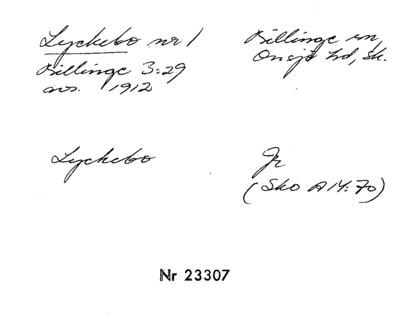 Lyckebo nr 1
Billinge 3:29
avs. 1912
Billinge sn,
Onsjö hd, Sk.
Lyckebo
Jr
(Sko A14:70)
Nr 23307